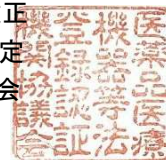 正
定
会
医薬品医療
機器等法
登録認証
機関協議会